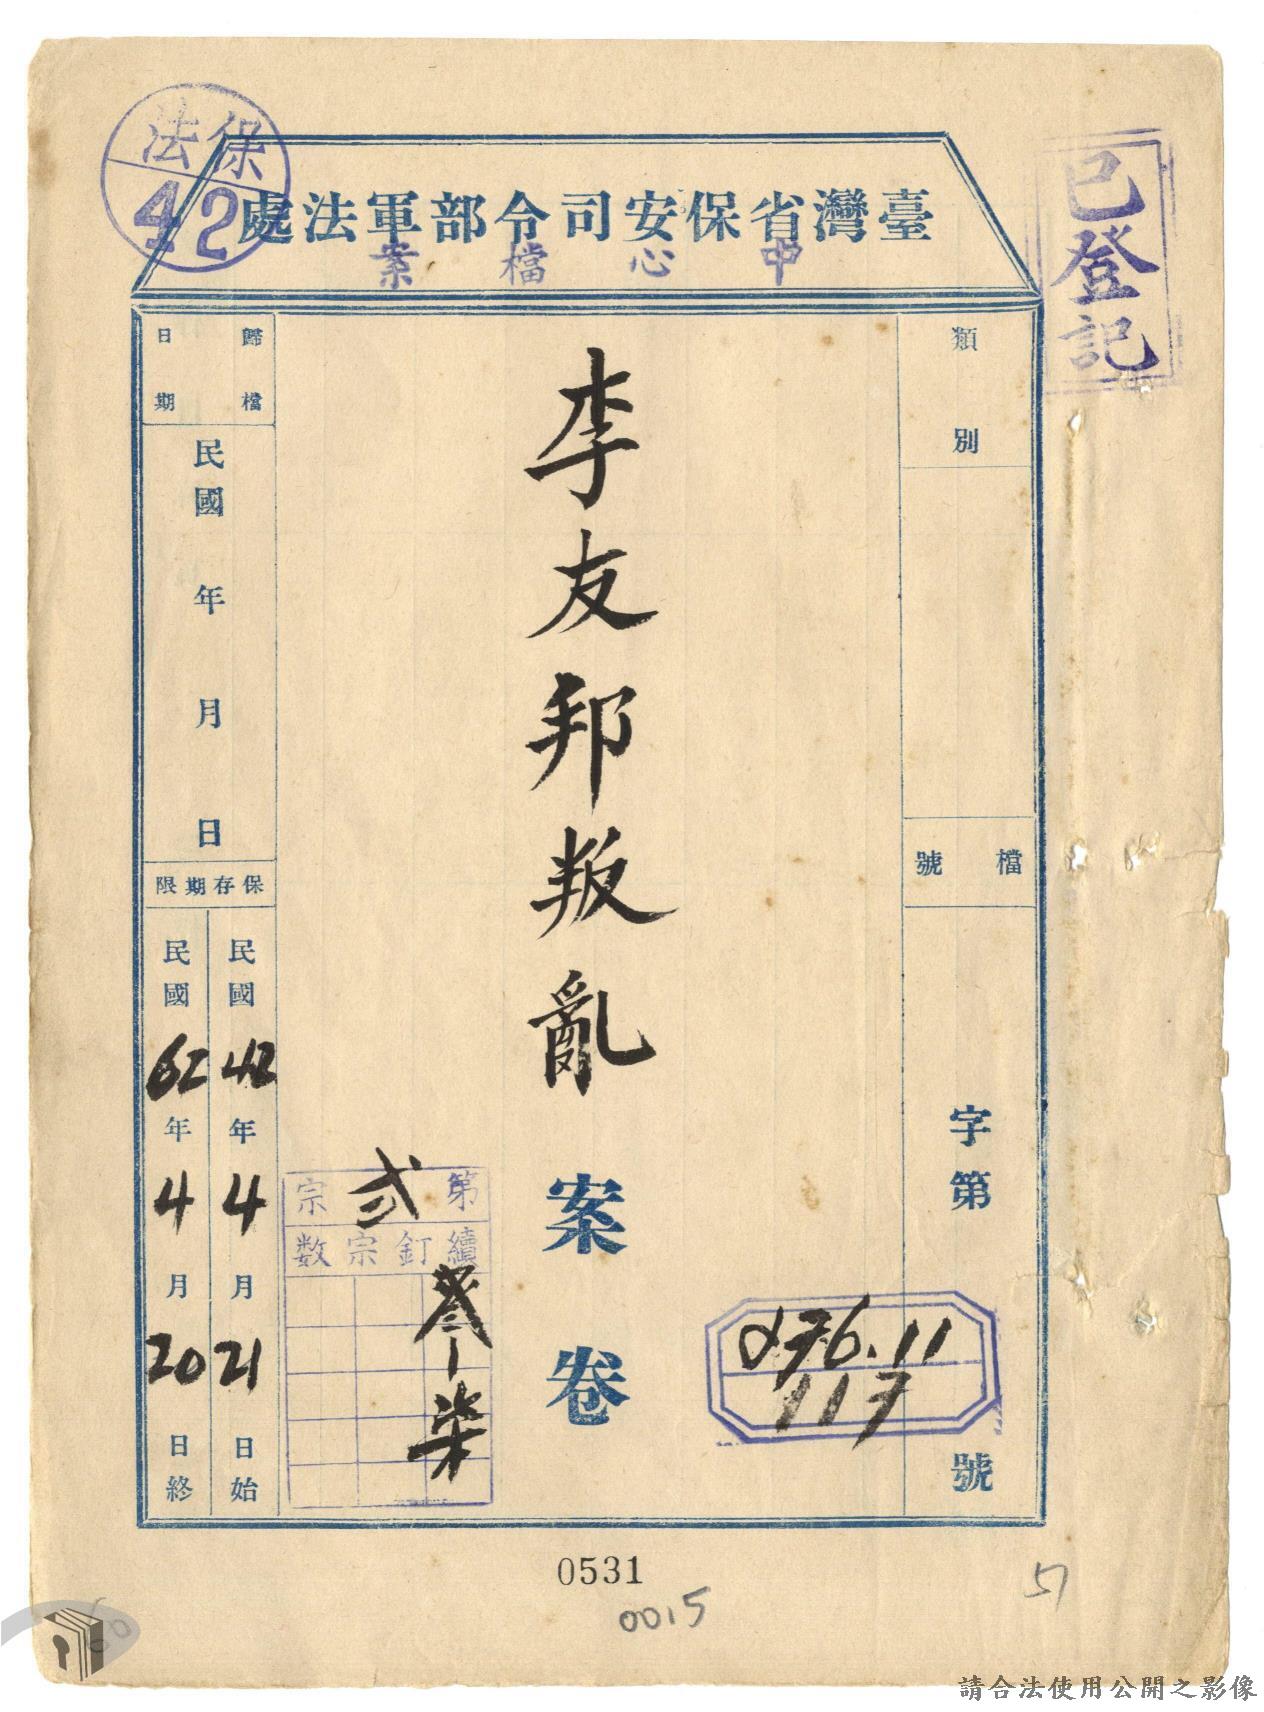 保法
42
臺灣省保安司令部軍法處
中心檔案
已登記
類別
檔號
字第
號
076.11
117
李友邦叛亂案卷
第弍宗
續釘宗數
柒
歸檔日期
民國 年 月 日
保存期限
民國42年4月21日始
民國62年4月20日終
0531
0015
51
請合法使用公開之影像